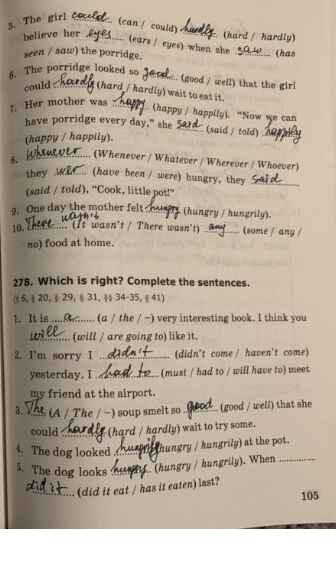 5. The girl could (can / could) hardly (hard / hardly)
believe her eyes (ears / eyes) when she saw (has
seen / saw) the porridge.
6. The porridge looked so good (good / well) that the girl
could hardly (hard / hardly) wait to eat it.
7. Her mother was happy (happy / happily). "Now we can
have porridge every day," she said (said / told) happily
(happy / happily).
8. Whenever (Whenever / Whatever / Wherever / Whoever)
they wer (have been / were) hungry, they said
(said / told), "Cook, little pot!"
9. One day the mother felt hungry (hungry / hungrily).
10. There wasn't (It wasn't / There wasn't) any (some / any /
no) food at home.
278. Which is right? Complete the sentences.
(§ 6, § 20, § 29, § 31, §§ 34-35, § 41)
1. It is a (a / the / –) very interesting book. I think you
will (will / are going to) like it.
2. I'm sorry I didn't (didn't come / haven't come)
yesterday. I had to (must / had to / will have to) meet
my friend at the airport.
3. The (A / The / –) soup smelt so good (good / well) that she
could hardly (hard / hardly) wait to try some.
4. The dog looked hungrily (hungry / hungrily) at the pot.
5. The dog looks hungry (hungry / hungrily). When ............
did it (did it eat / has it eaten) last?
105